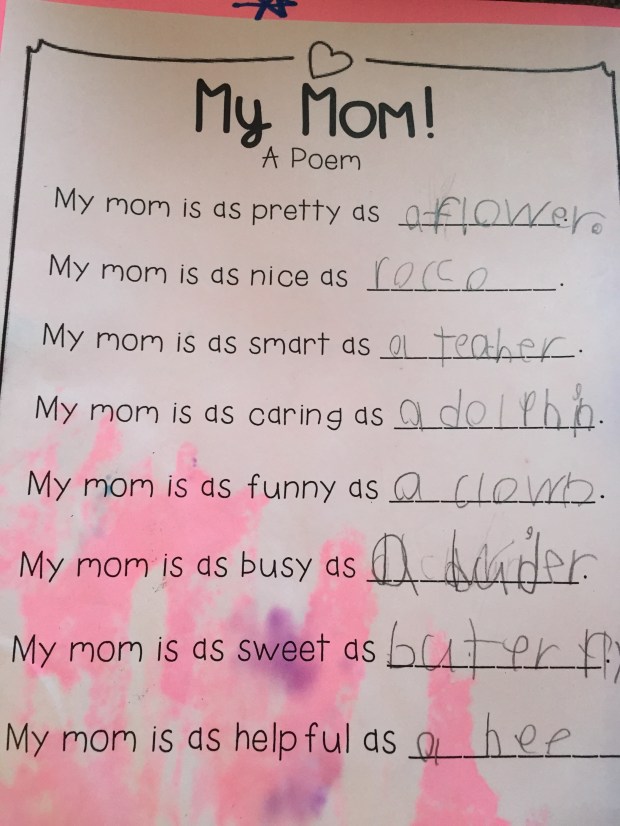 My Mom!
A Poem
My mom is as pretty as a flower.
My mom is as nice as rocco.
My mom is as smart as a teaher.
My mom is as caring as a dolphin.
My mom is as funny as a clown.
My mom is as busy as a
My mom is as sweet as buterfly.
My mom is as helpful as a bee